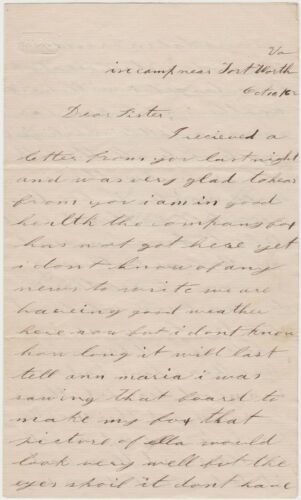 Va
in camp near Fort Worth
Oct 10/62
Dear Sister
I recieved a
letter from you last night
and was very glad to hear
from you i am in good
health the company box
has not got here yet
i dont know of any
news to write we are
haveing good weather
here now but i dont know
how long it will last
tell ann maria i was
sawing that board to
make my box that
picture of ella would
look very well but the
eyes spoil it dont have